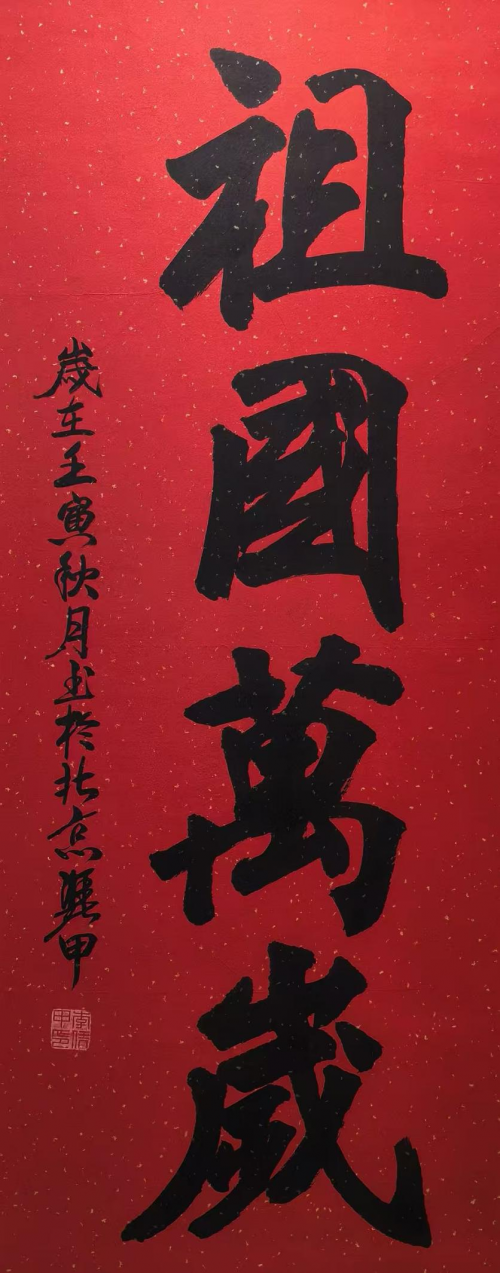 祖國萬歲
歲在壬寅秋月书於北京
甲